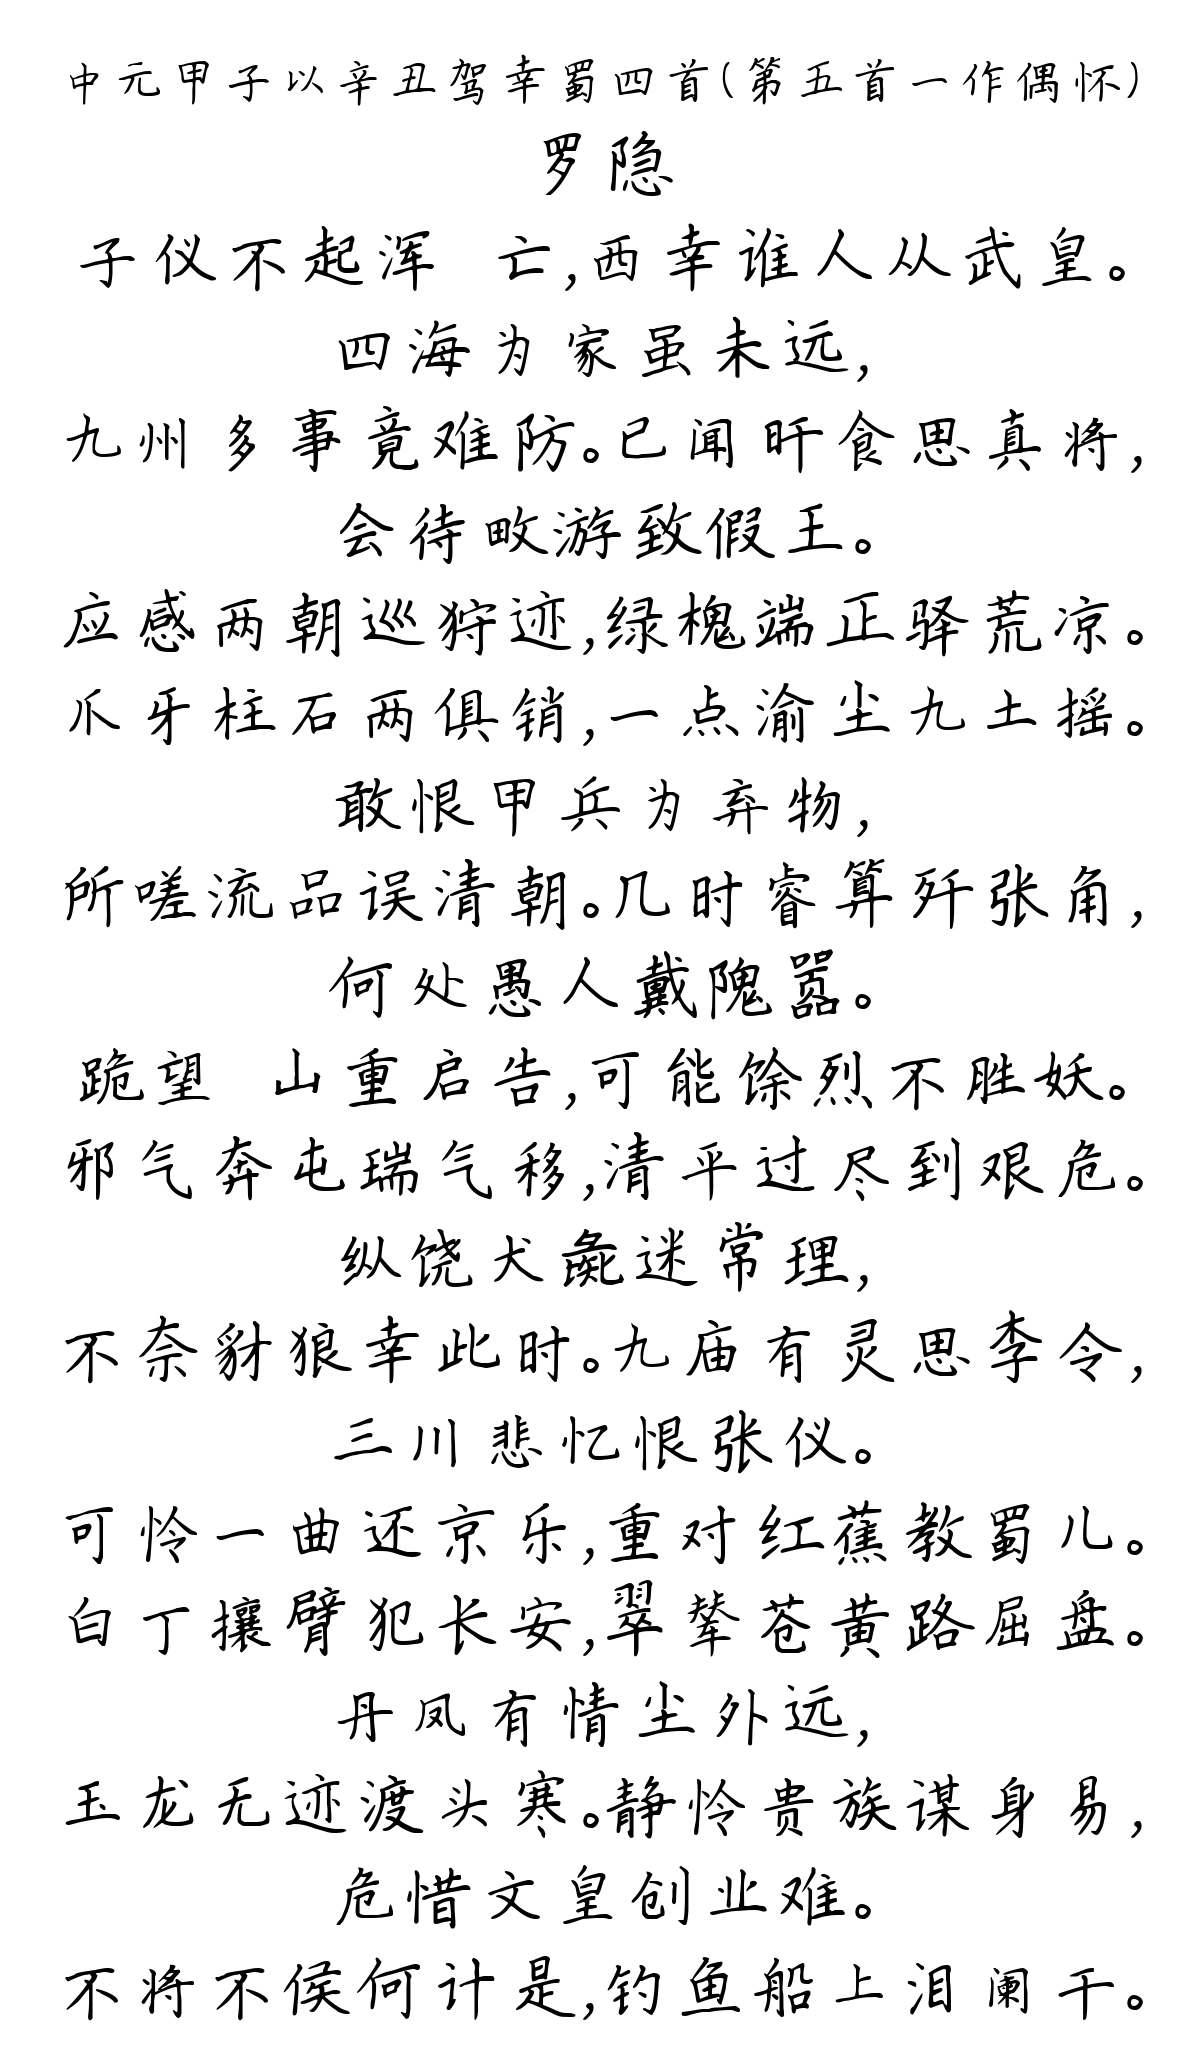 中元甲子以辛丑驾幸蜀四首(第五首一作偶怀)
罗隐
子仪不起浑 亡,西幸谁人从武皇。
四海为家虽未远,
九州多事竟难防。已闻旰食思真将,
会待畋游致假王。
应感两朝巡狩迹,绿槐端正驿荒凉。
爪牙柱石两俱销,一点渝尘九土摇。
敢恨甲兵为弃物,
所嗟流品误清朝。几时睿算歼张角,
何处愚人戴隗嚣。
跪望 山重启告,可能馀烈不胜妖。
邪气奔屯瑞气移,清平过尽到艰危。
纵饶犬彘迷常理,
不奈豺狼幸此时。九庙有灵思李令,
三川悲忆恨张仪。
可怜一曲还京乐,重对红蕉教蜀儿。
白丁攘臂犯长安,翠辇苍黄路屈盘。
丹凤有情尘外远,
玉龙无迹渡头寒。静怜贵族谋身易,
危惜文皇创业难。
不将不侯何计是,钓鱼船上泪阑干。